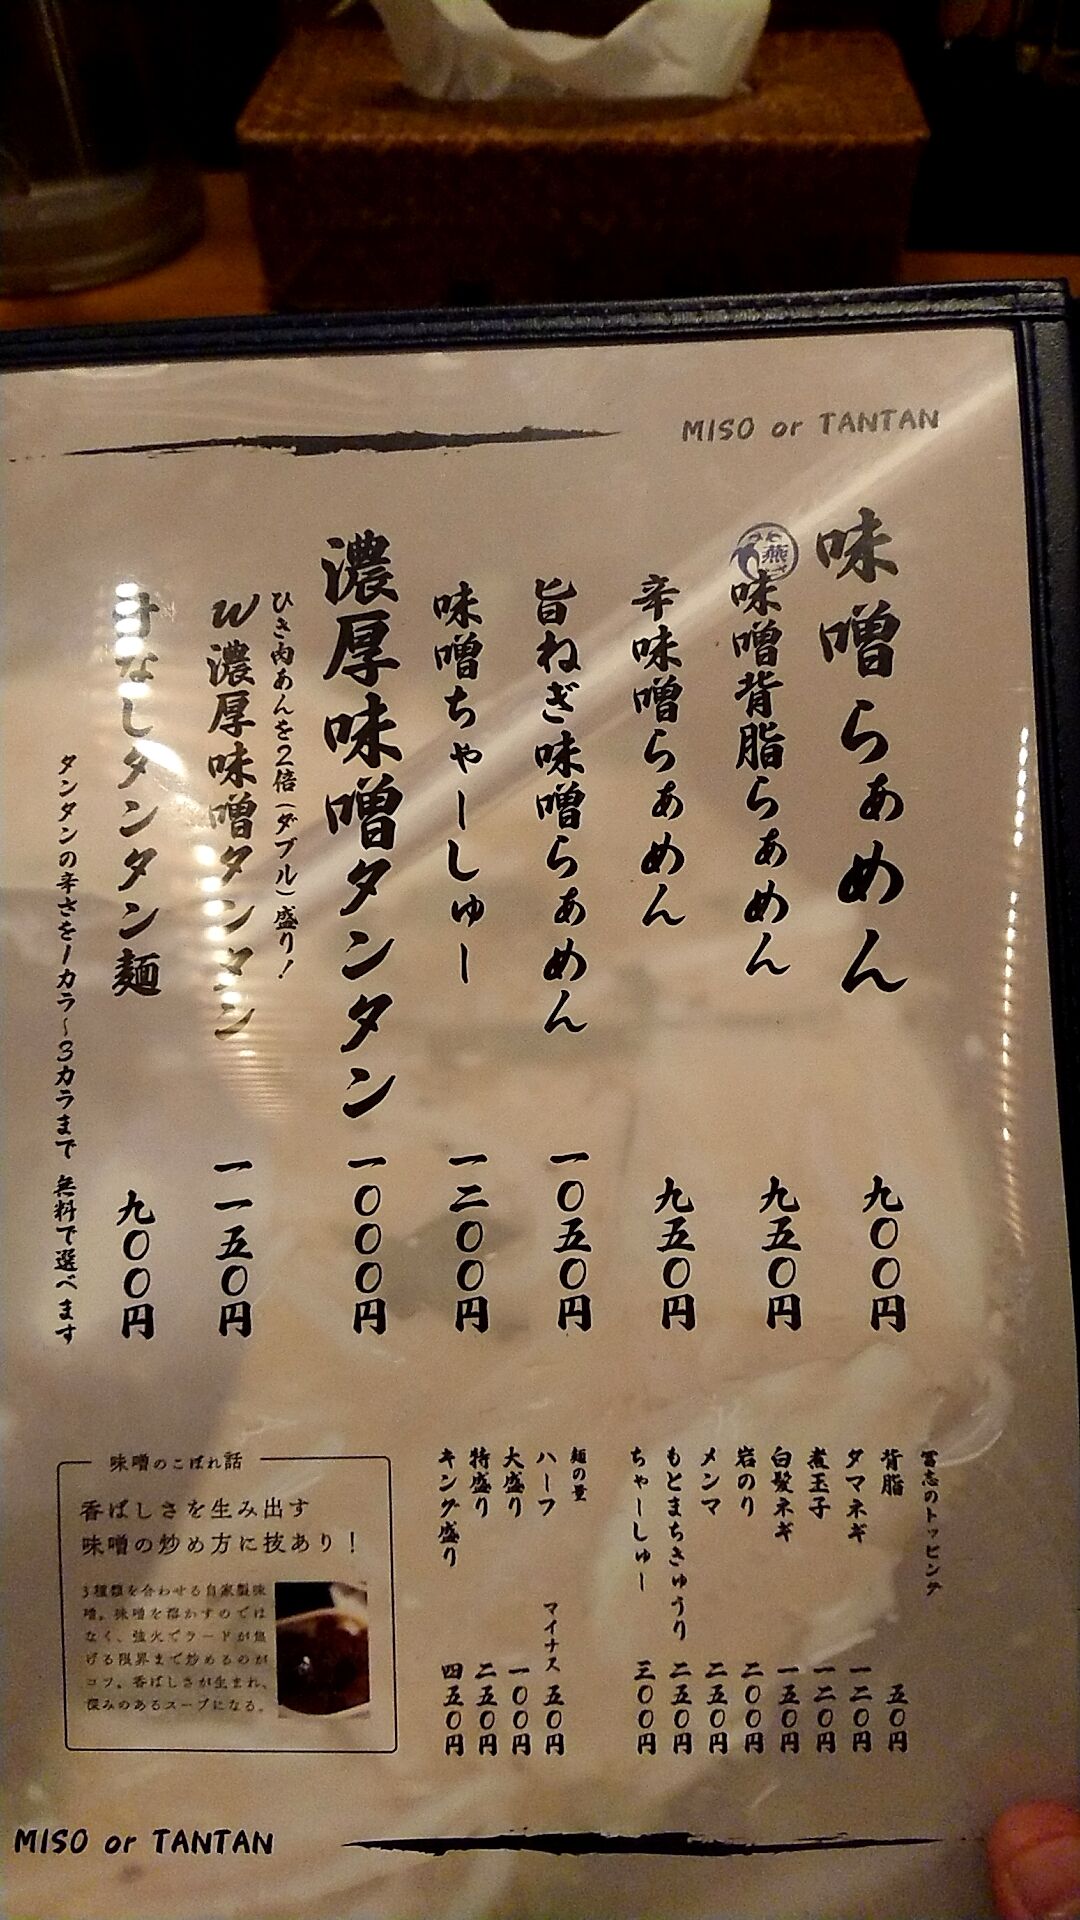 MISO or TANTAN
味噌らぁめん 九〇〇円
燕
味噌背脂らぁめん 九五〇円
辛味噌らぁめん 九五〇円
旨ねぎ味噌らぁめん 一〇五〇円
味噌ちゃーしゅー 一二〇〇円
濃厚味噌タンタン 一〇〇〇円
ひき肉あんを2倍(ダブル)盛り!
W濃厚味噌タンタン 一一五〇円
汁なしタンタン麺 九〇〇円
タンタンの辛さを1カラ~3カラまで 無料で選べます
冨志のトッピング
背脂 五〇円
タマネギ 一二〇円
煮玉子 一二〇円
白髪ネギ 一五〇円
岩のり 二〇〇円
メンマ 二五〇円
もとまちきゅうり 二五〇円
ちゃーしゅー 三〇〇円
麺の量
ハーフ マイナス 五〇円
大盛り 一〇〇円
特盛り 二五〇円
キング盛り 四五〇円
味噌のこぼれ話
香ばしさを生み出す
味噌の炒め方に技あり!
3種類を合わせる自家製味
噌。味噌を溶かすのでは
なく、強火でラードが焦
げる限界まで炒めるのが
コツ。香ばしさが生まれ、
深みのあるスープになる。
MISO or TANTAN